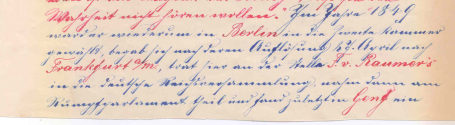 Wahrheit nicht hören wollen." Im Jahre 1849
wurde er wiederum in Berlin in die zweite Kammer
gewählt, begab sich nach deren Auflösung, 27. April nach
Frankfurt a/M., trat hier an die Stelle F. v. Raumer's
in die deutsche Reichsversammlung, nahm dann am
Rumpfparlament theil und fand zuletzt in Genf ein